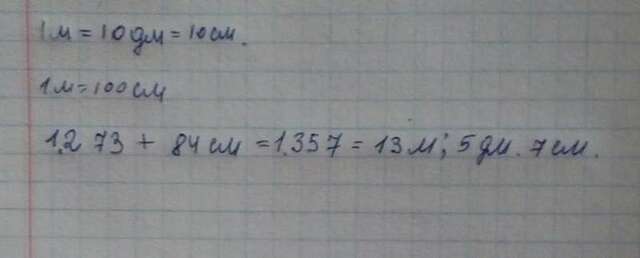 1м = 10дм = 10см.
1м = 100см
1.273 + 84см = 1.357 = 13м; 5дм. 7см.